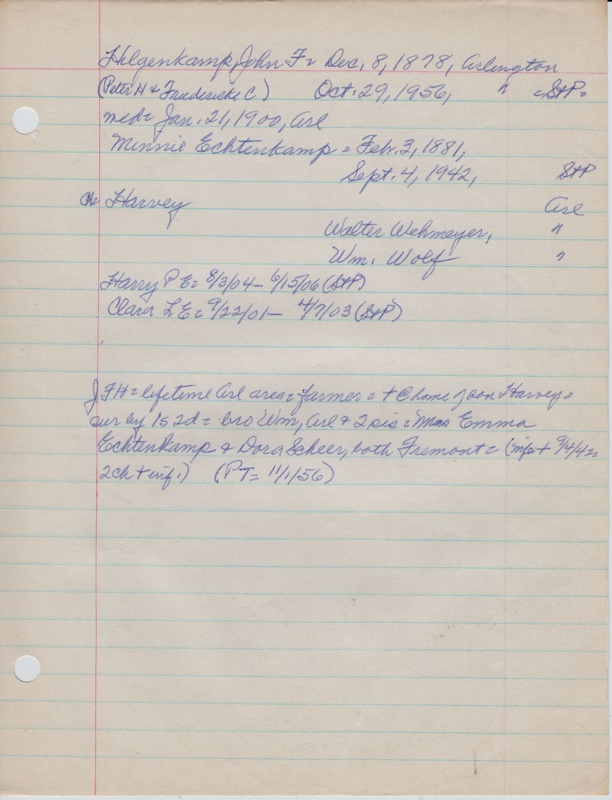 Hilgenkamp, John F = Dec. 8, 1878, Arlington
(Peter H & Fredericke C.) Oct. 29, 1956, " = StP =
med = Jan. 21, 1900, Arl
Minnie Echtenkamp = Feb. 3, 1881,
Sept. 4, 1942, StP
Ch Harvey Arl
Walter Wehmeyer, "
Wm. Wolf "
Harry P E = 8/3/04 – 6/15/06 (StP)
Clara L E = 9/22/01 – 4/7/03 (StP)
JFH = lifetime Arl area = farmer = + @ home of son Harvey =
sur by 1s 2d = bro Wm, Arl & 2 sis = Mmes Emma
Echtenkamp & Dora Scheer, both Fremont = (inf + 9/4/42 =
2ch + inf.) (PT = 11/1/56)